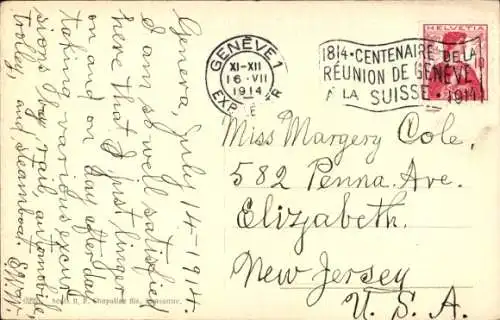 Geneva, July 14-1914.
I am so well satisfied
here that I just linger
on and on day after day
taking various excur
sions by rail, automobile,
trolley, and steamboat.
E.W.W.
GENÈVE 1
XI-XII
16·VII
1914
EXP
1814·CENTENAIRE DE LA
RÉUNION DE GENÈVE
À LA SUISSE·1914
HELVETIA
10
Miss Margery Cole,
582 Penna. Ave.
Elizabeth.
New Jersey
U. S. A.